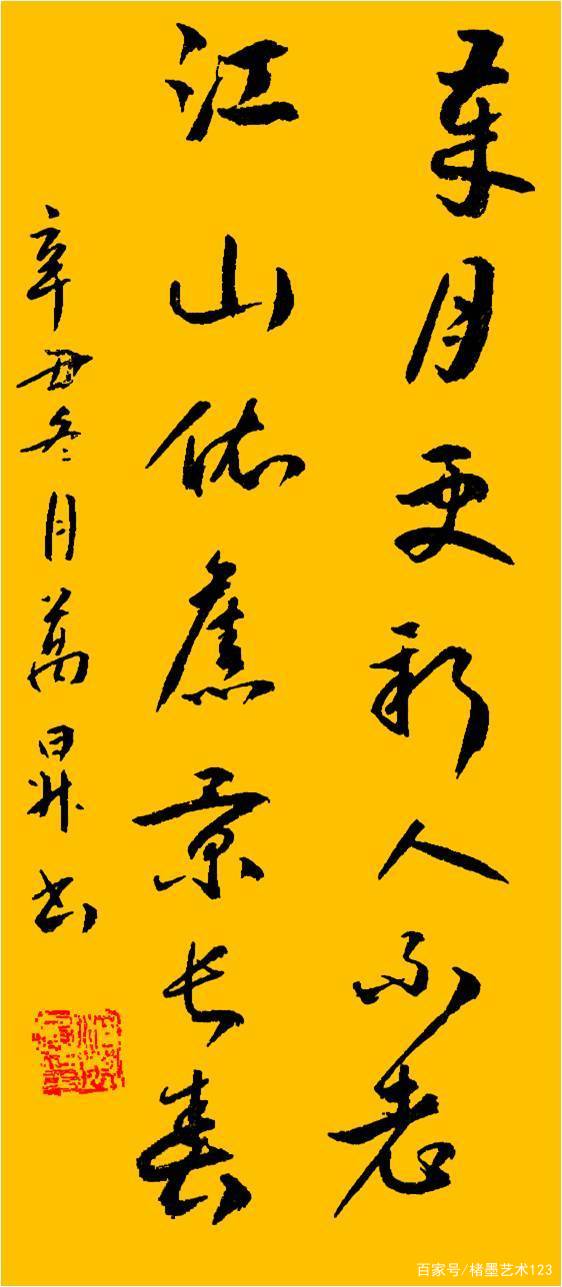 年月更新人不老
江山依舊景长春
辛丑冬月萬昇书
百家号/楮墨艺术123